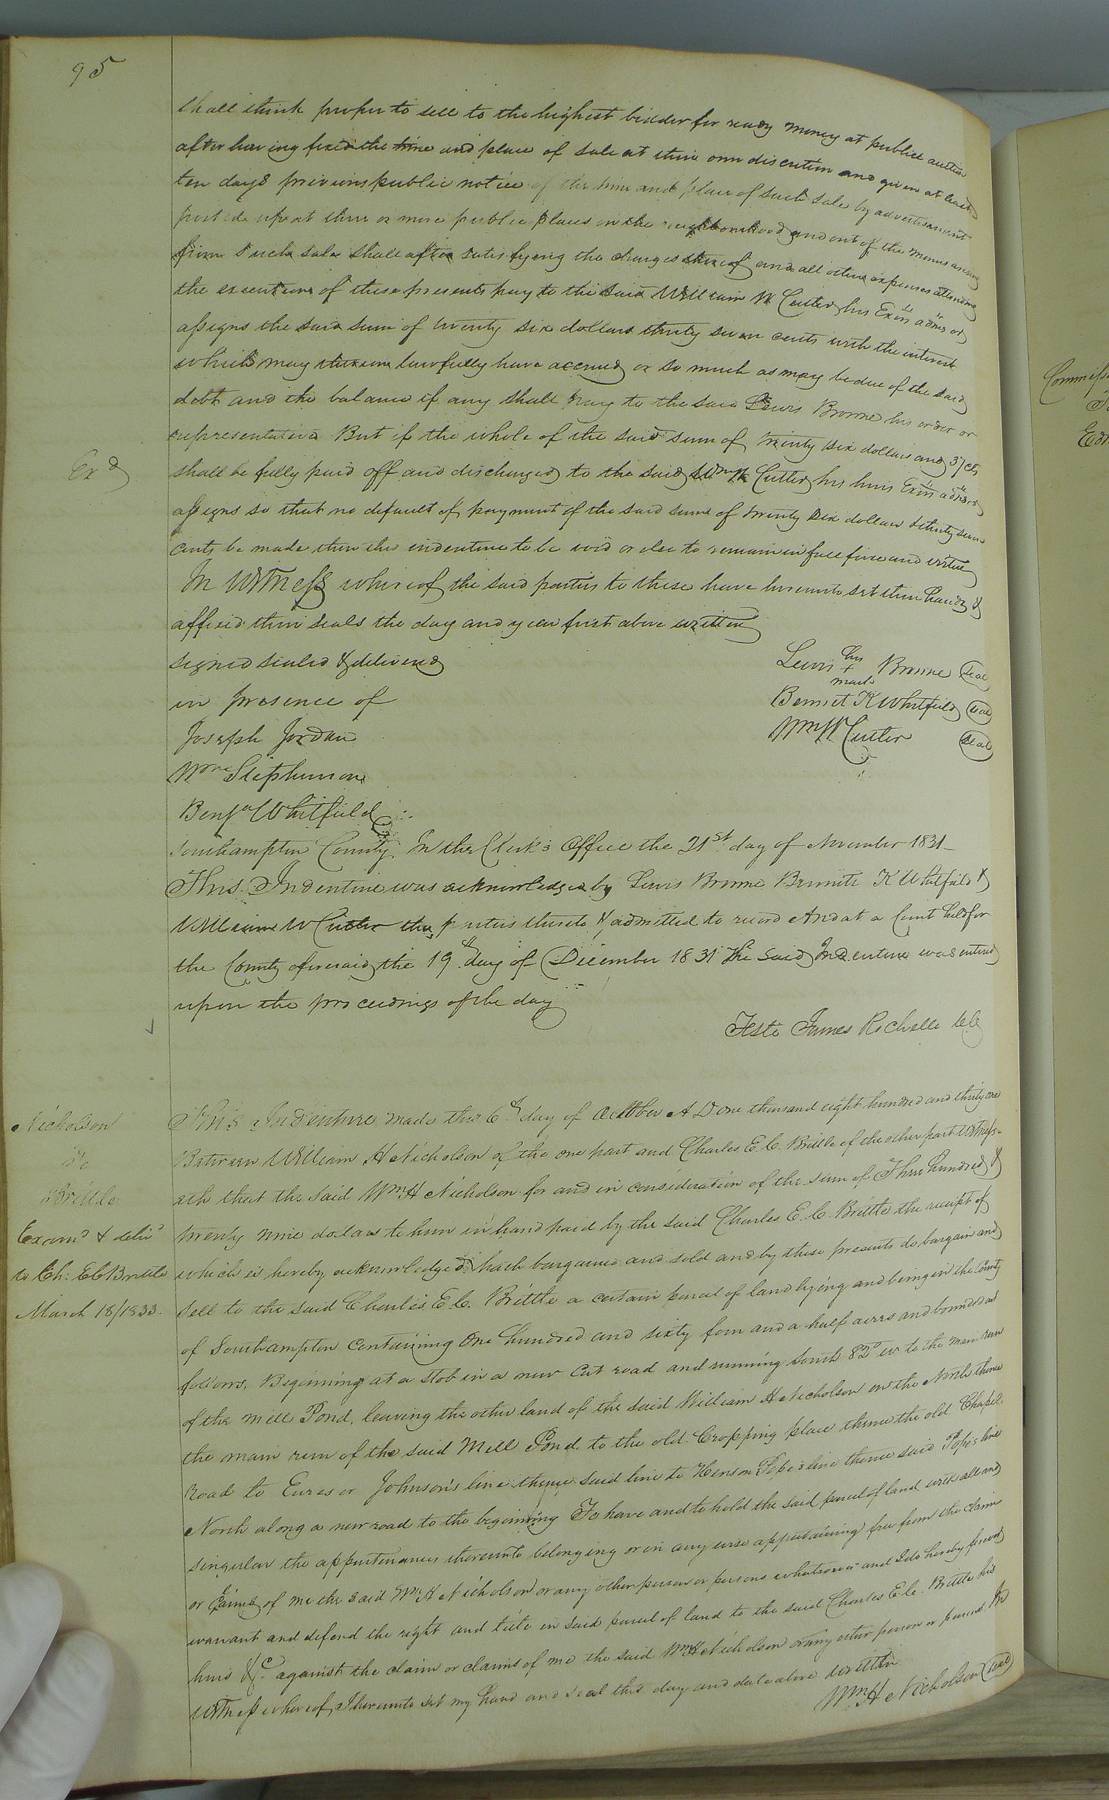 95
shall think proper to sell to the highest bidder for ready money at public auction
after having fixed the time and place of sale at their own discretion and given at least
ten days previous public notice of the time and place of such sale by advertisement
posted up at three or more public places in the neighbourhood and out of the monies arising
from such sale shall after satisfying the charges thereof and all other expenses attending
the execution of these presents pay to the said William W Cutler his Exīīs adm̄s or
assigns the said sum of twenty six dollars thirty seven cents with the interest
which may thereon lawfully have accrued or so much as may be due of the said
debt and the balance if any shall pay to the said Lewis Browne his order or
representatives But if the whole of the said sum of twenty six dollars and 37 cts
Exd
shall be fully paid off and discharged to the said Wm W Cutler his heirs Exīīs adm̄s or
assigns so that no default of payment of the said sum of twenty six dollars & thirty seven
cents be made then this indenture to be void or else to remain in full force and virtue
In Witness whereof the said parties to these have hereunto set their hands &
affixed their seals the day and year first above written
signed sealed & delivered
in presence of
Joseph Jordan
Wm Stephenson
Benja Whitfield
Lewis his + mark Browne seal
Bennet K Whitfield seal
Wm W Cutler seal
Southampton County In the Clerk's Office the 21st day of November 1831
This Indenture was acknowledged by Lewis Browne Bennett K Whitfield &
William W Cutler the parties thereto & admitted to record And at a Court held for
the County aforesaid the 19th day of December 1831 The said Indenture was entered
upon the proceedings of the day
Teste James Rochelle
Nicholson
To
Brittle
Examd & delivd
to Ch: E C Brittle
March 18/1833.
This Indenture made this 6th day of October A D one thousand eight hundred and thirty one
Between William H Nicholson of the one part and Charles E. C. Brittle of the other part Witness=
eth that the said Wm H Nicholson for and in consideration of the sum of Three hundred &
twenty nine dollars to him in hand paid by the said Charles E. C. Brittle the receipt of
which is hereby acknowledged hath bargained and sold and by these presents do bargain and
sell to the said Charles E. C. Brittle a certain parcel of land lying and being in the County
of Southampton containing one hundred and sixty four and a half acres and bounded as
follows, Beginning at a stob in a new cut road and running South 82° w to the main run
of the mill Pond, leaving the other land of the said William H Nicholson on the North thence
the main run of the said Mill Pond to the old Cropping place thence the old Chapel
road to Eures or Johnson's line thence said line to Henson Pope's line thence said Pope's line
North along a new road to the beginning To have and to hold the said parcel of land with all and
singular the appurtenances thereunto belonging or in any wise appertaining free from the claim
or claims of me the said Wm H Nicholson or any other person or persons whatsoever and I do hereby forever
warrant and defend the right and title in said parcel of land to the said Charles E. C. Brittle his
heirs &c against the claim or claims of me the said Wm H Nicholson or any other person or persons. In
witness whereof I hereunto set my hand and seal this day and date above written
Wm H Nicholson seal